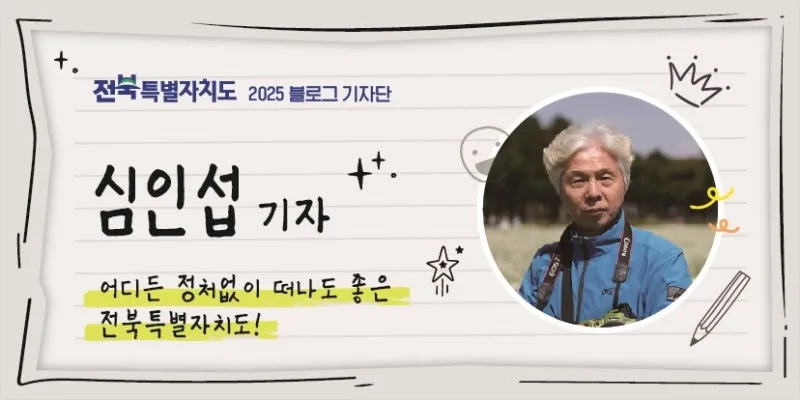 전북특별자치도 2025 블로그 기자단
심인섭 기자
어디든 정처없이 떠나도 좋은
전북특별자치도!
Canon